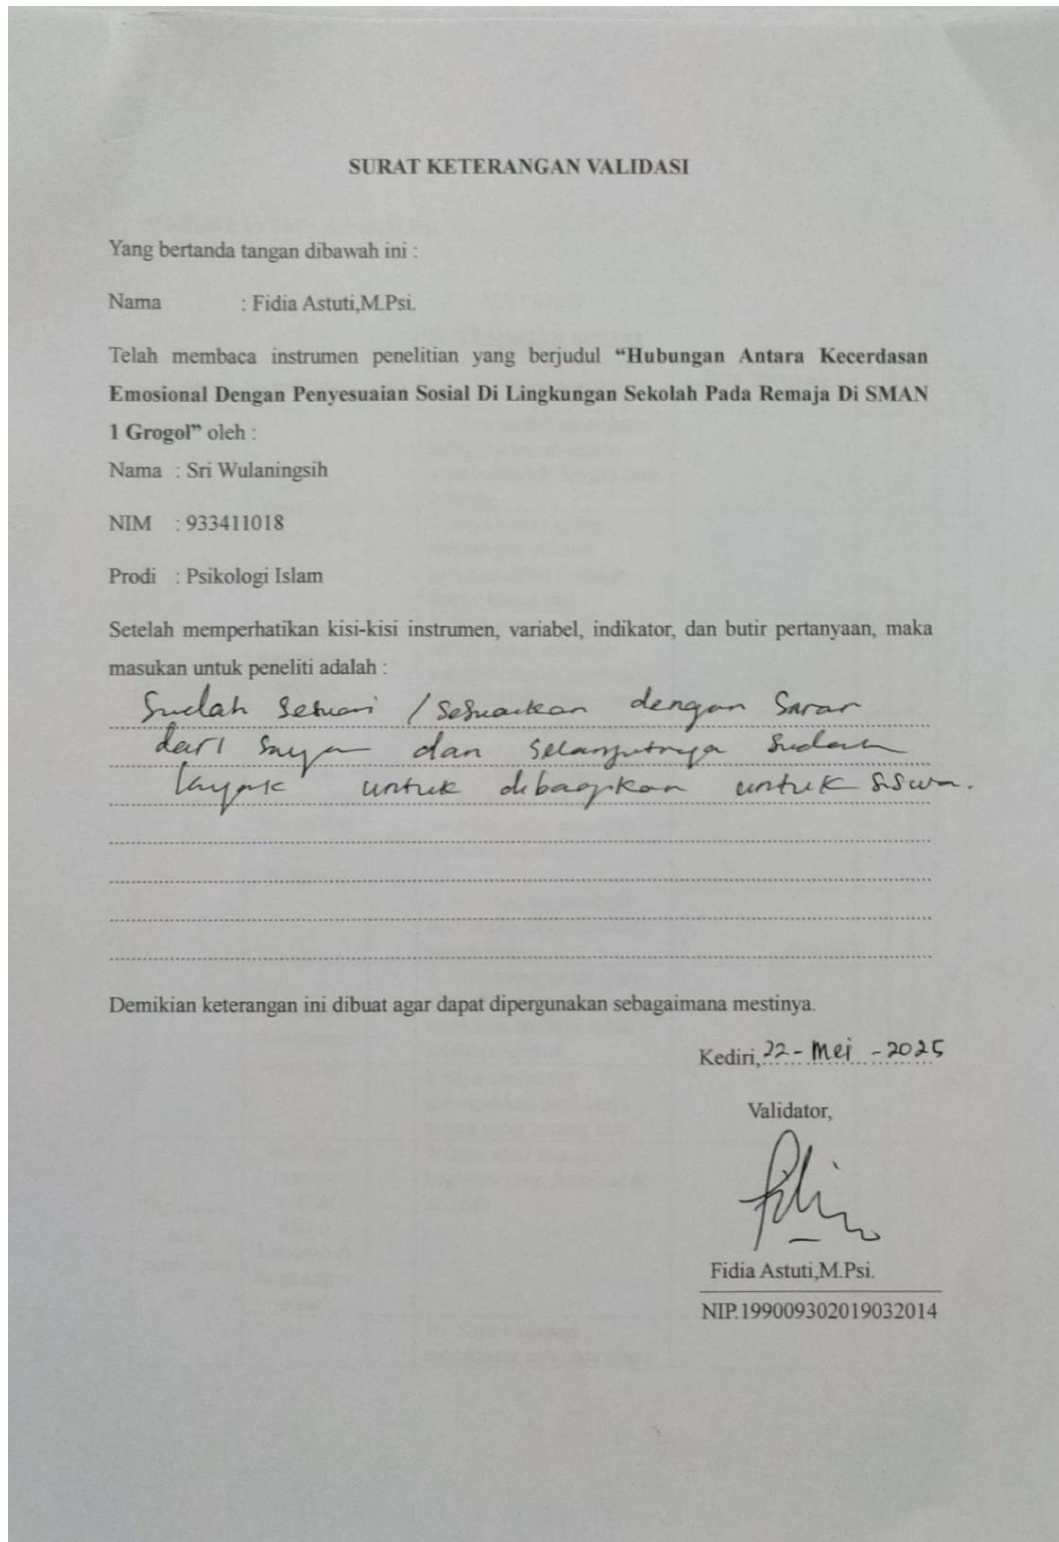 SURAT KETERANGAN VALIDASI
Yang bertanda tangan dibawah ini :
Nama : Fidia Astuti,M.Psi.
Telah membaca instrumen penelitian yang berjudul “Hubungan Antara Kecerdasan
Emosional Dengan Penyesuaian Sosial Di Lingkungan Sekolah Pada Remaja Di SMAN
1 Grogol” oleh :
Nama : Sri Wulaningsih
NIM : 933411018
Prodi : Psikologi Islam
Setelah memperhatikan kisi-kisi instrumen, variabel, indikator, dan butir pertanyaan, maka
masukan untuk peneliti adalah :
Sudah sesuai / sesuaikan dengan saran
dari saya dan selanjutnya sudah
layak untuk dibagikan untuk siswa.
Demikian keterangan ini dibuat agar dapat dipergunakan sebagaimana mestinya.
Kediri, 22 - Mei - 2025
Validator,
Fidia Astuti,M.Psi.
NIP.199009302019032014